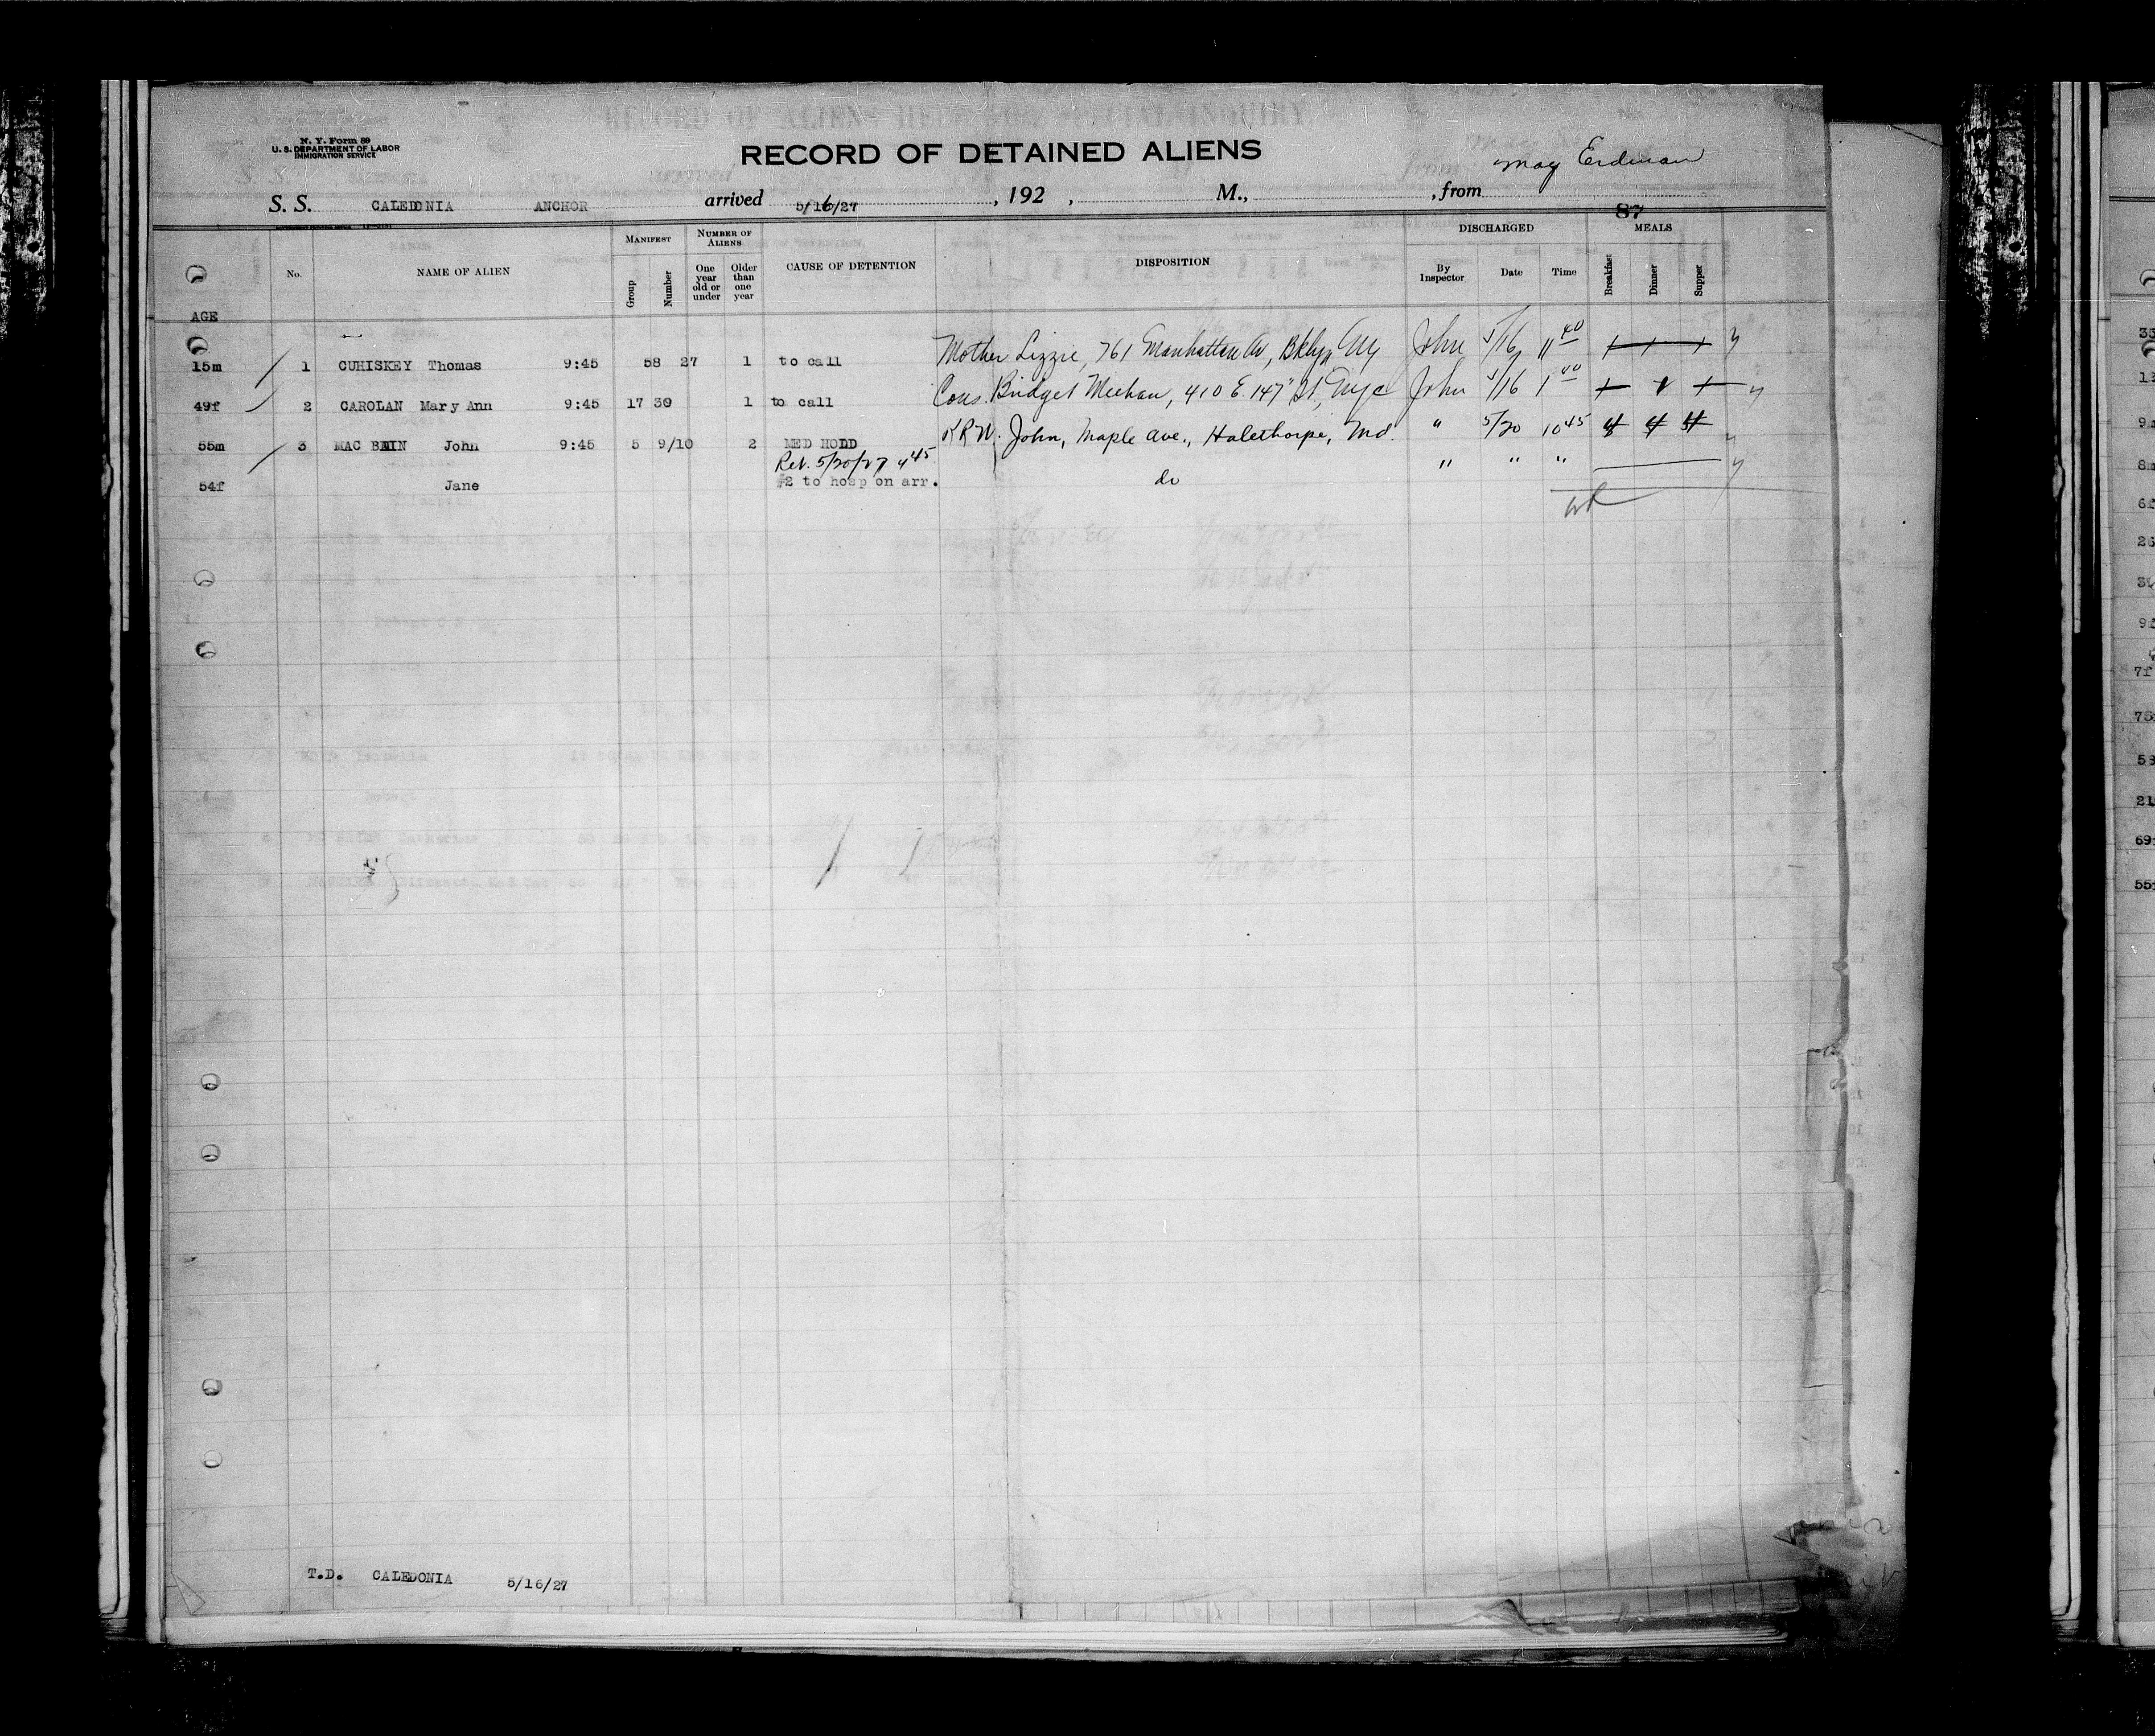 N. Y. Form 89
U. S. DEPARTMENT OF LABOR
IMMIGRATION SERVICE
RECORD OF DETAINED ALIENS
May Erdman
S. S. CALEDONIA ANCHOR arrived 5/16/27, 192 , M., , from
87
AGE No. NAME OF ALIEN MANIFEST Group Number NUMBER OF ALIENS One year old or under Older than one year CAUSE OF DETENTION DISPOSITION DISCHARGED By Inspector Date Time MEALS Breakfast Dinner Supper
15m 1 CUHISKEY Thomas 9:45 58 27 1 to call Mother Lizzie, 761 Manhattan Av, Bklyn NY John 5/16 11 40
49f 2 CAROLAN Mary Ann 9:45 17 30 1 to call Cous. Bridget Meehan, 410 E. 147" St, Nyc John 5/16 1 40
55m 3 MAC BAIN John 9:45 5 9/10 2 MED HOLD John, Maple Ave., Halethorpe, Md. " 5/20 10 45 4 4 4
Rel. 5/20/27 4 45 " " "
54f Jane #2 to hosp on arr. do
T.D. CALEDONIA 5/16/27
33
9m
8m
26
7f
58
21
69
55